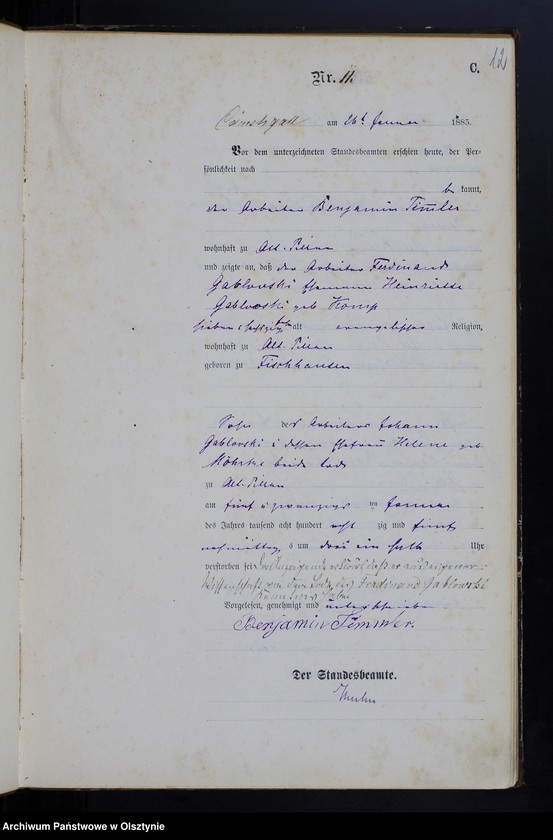 12
C.
Nr. 11.
am 26t Januar 1885.
Vor dem unterzeichneten Standesbeamten erschien heute, der Per-
sönlichkeit nach
be kannt,
der Arbeiter Benjamin Timler
wohnhaft zu Alt-Pillau
und zeigte an, daß der Arbeiter Ferdinand
Gablovski Ehemann Heinriette
Gablovski geb.
alt evangelischer Religion,
wohnhaft zu Alt-Pillau
geboren zu Fischhausen
Sohn des Arbeiters Johann
Gablovski u dessen Ehefrau Helene geb
beide todt
zu Alt-Pillau
am fünf u zwanzigsten Januar
des Jahres tausend acht hundert acht zig und fünf
nachmittags um drei ein halb Uhr
verstorben sei Der Anzeigende erklärt daß er aus eigener
Wissenschaft von dem Tode des Ferdinand Gablowski
Vorgelesen, genehmigt und unterschrieben
Benjamin Timmler.
Der Standesbeamte.
Archiwum Państwowe w Olsztynie